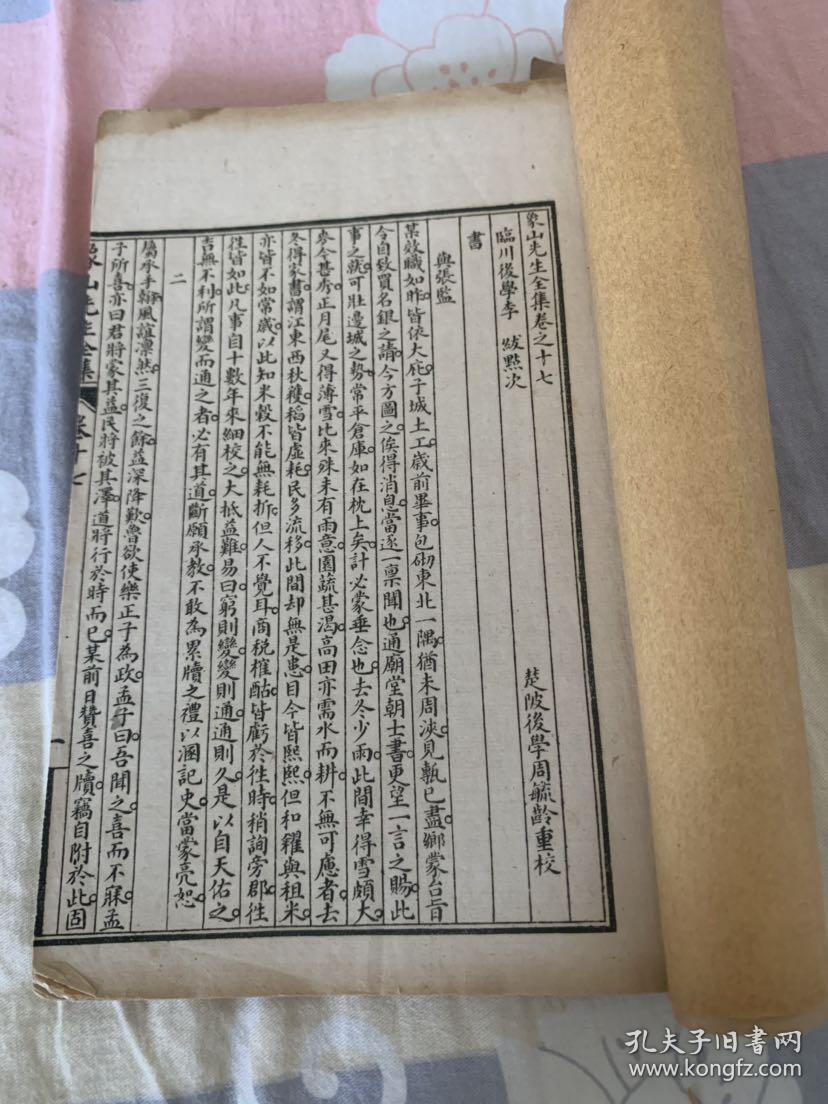 象山先生全集卷之十七
臨川後學李 紱點次
楚陂後學周毓齡重校
書
與張監
某效職如昨。皆依大庇。子城土工。歲前畢事。包砌東北一隅。猶未周浹。見甎已盡。鄉蒙台旨
令自致買名銀之請。今方圖之。俟得消息。當逐一稟聞也。通廟堂朝士書。更望一言之賜。此
事之就。可壯邊城之勢。常平倉庫。如在枕上矣。計必蒙垂念也。去冬少雨。此間幸得雪頗大。
麥今甚秀。正月尾又得薄雪。比來殊未有雨意。園蔬甚渴。高田亦需水而耕。不無可慮者。去
冬得家書。謂江東西秋穫。稻皆虛耗。民多流移。此間却無是患。目今皆熙熙。但和糴與租米。
亦皆不如常歲。以此知米穀不能無耗折。但人不覺耳。商稅榷酤。皆虧於徃時。稍詢旁郡。徃
徃皆如此。凡事自十數年來細校之。大抵益難。易曰。窮則變。變則通。通則久。是以自天佑之
吉無不利。所謂變而通之者。必有其道。斷願承教。不敢為累牘之禮。以溷記史。當蒙亮恕。
二
屬承手翰。風誼凛然。三復之餘。益深降歎。魯欲使樂正子為政。孟子曰。吾聞之喜而不寐。孟
子所喜。亦曰君將蒙其益。民將被其澤。道將行於時而已。某前日贊喜之牘。竊自附於此。固
象山先生全集
卷十七
一
孔夫子旧书网
www.kongfz.com